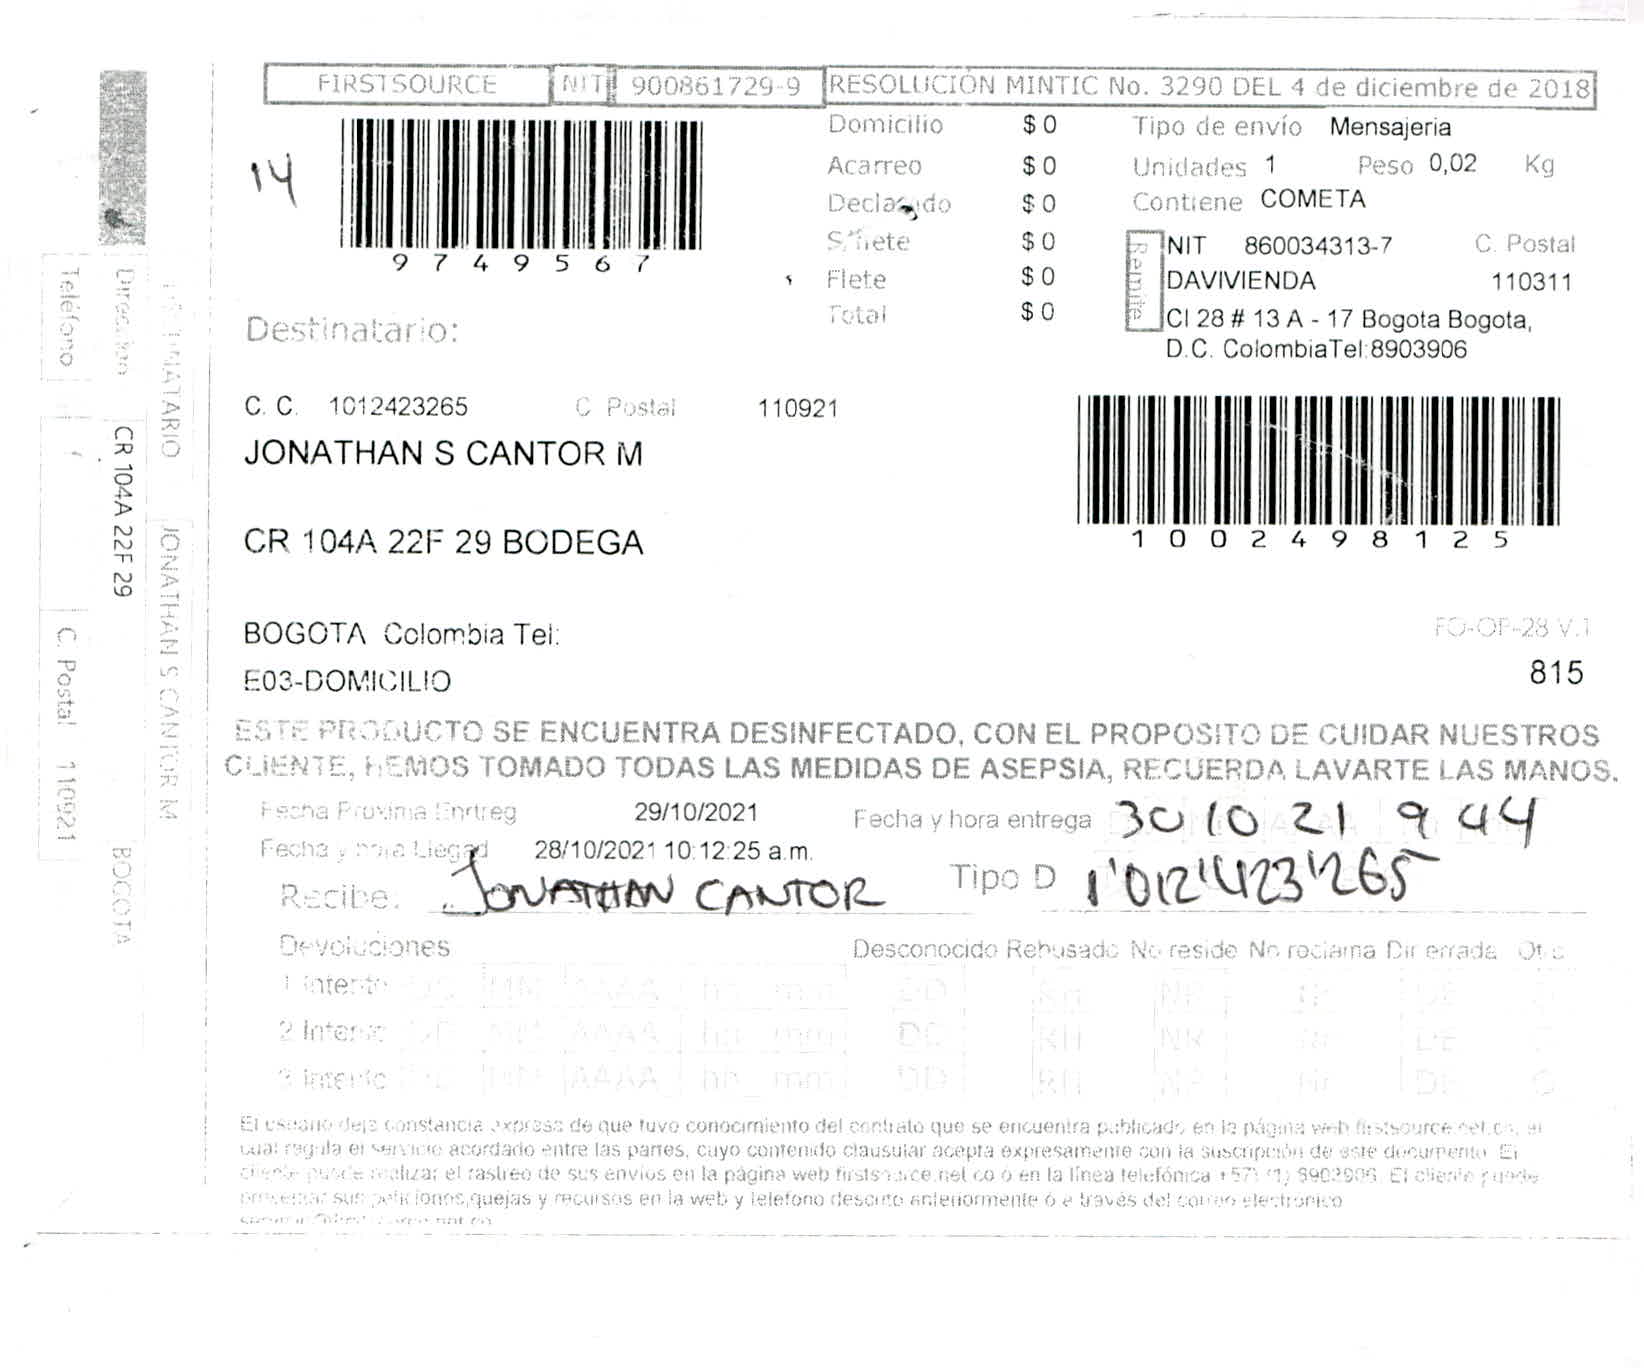 FIRSTSOURCE NIT 900861729-9 RESOLUCIÓN MINTIC No. 3290 DEL 4 de diciembre de 2018
14
9749567
Domicilio $ 0
Acarreo $ 0
Declarado $ 0
S/flete $ 0
Flete $ 0
Total $ 0
Tipo de envío Mensajeria
Unidades 1 Peso 0,02 Kg
Contiene COMETA
Remite
NIT 860034313-7 C. Postal
DAVIVIENDA 110311
Cl 28 # 13 A - 17 Bogota Bogota,
D.C. ColombiaTel:8903906
Destinatario:
C. C. 1012423265 C Postal 110921
JONATHAN S CANTOR M
CR 104A 22F 29 BODEGA
1002498125
BOGOTA Colombia Tel:
E03-DOMICILIO
FO-OP-28 V.1
815
ESTE PRODUCTO SE ENCUENTRA DESINFECTADO, CON EL PROPOSITO DE CUIDAR NUESTROS
CLIENTE, HEMOS TOMADO TODAS LAS MEDIDAS DE ASEPSIA, RECUERDA LAVARTE LAS MANOS.
Fecha Proxima Enrtreg 29/10/2021 Fecha y hora entrega 30 10 21 9 44
Fecha y hora Llegad 28/10/2021 10:12:25 a.m.
Recibe: JONATHAN CANTOR Tipo D 1'012'423'265
Devoluciones Desconocido Rehusado No reside No reclama Dir errada Otro
1 Intento DD MM AAAA hh mm DD RH NR DE O
2 Intento DD MM AAAA hh mm DD RH NR DE O
3 Intento DD MM AAAA hh mm DD RH NR DE O
El usuario deja constancia expresa de que tuvo conocimiento del contrato que se encuentra publicado en la página web firstsource.net.co, el
cual regula el servicio acordado entre las partes, cuyo contenido clausular acepta expresamente con la suscripción de este documento. El
cliente puede realizar el rastreo de sus envios en la página web firstsource.net.co ó en la línea telefónica +57) (1) 8903906. El cliente puede
presentar sus peticiones,quejas y recursos en la web y telefono descrito anteriormente ó a través del correo electronico
DESTINATARIO JONATHAN S CANTOR M
Direccion CR 104A 22F 29 BOGOTA
Teléfono C. Postal 110921